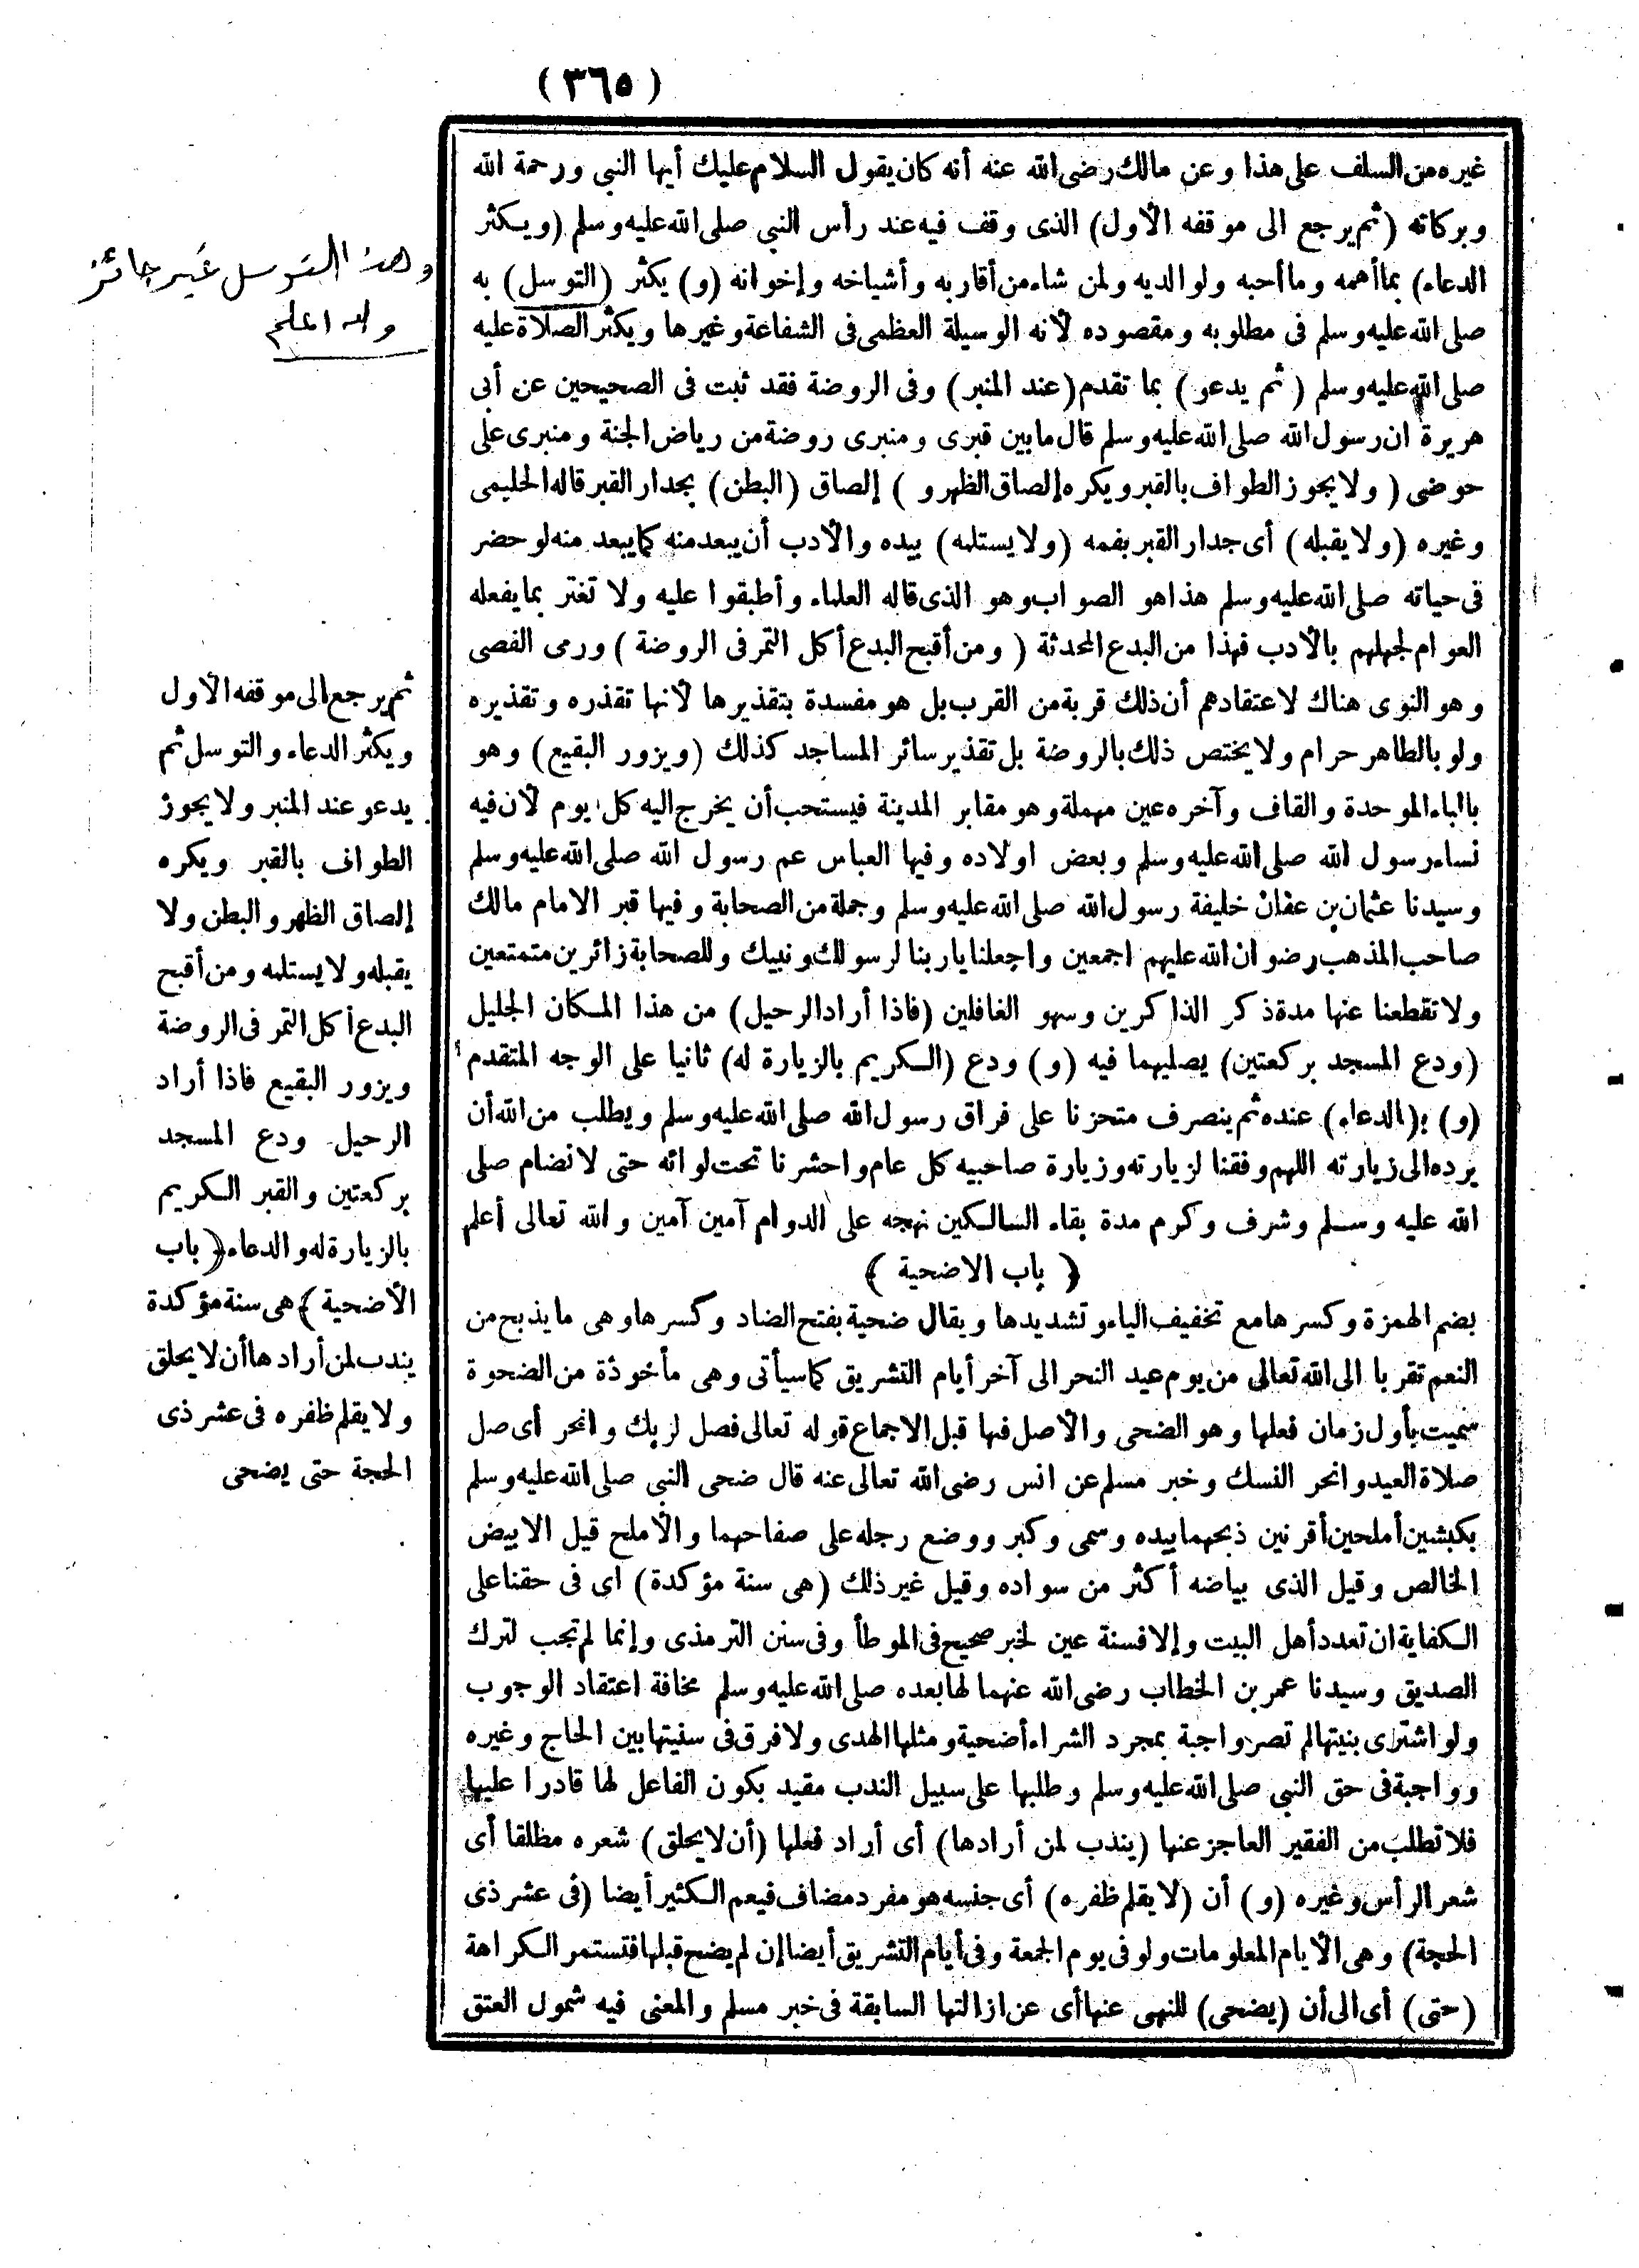 (٣٦٥)
غيره من السلف على هذا وعن مالك رضى الله عنه أنه كان يقول السلام عليك أيها النبى ورحمة الله
وبركاته (ثم يرجع الى موقفه الأول) الذى وقف فيه عند رأس النبى صلى الله عليه وسلم (ويكثر
الدعاء) بما أهمه وما أحبه ولوالديه ولمن شاء من أقاربه وأشياخه وإخوانه (و) يكثر (التوسل) به
صلى الله عليه وسلم فى مطلوبه ومقصوده لأنه الوسيلة العظمى فى الشفاعة وغيرها ويكثر الصلاة عليه
صلى الله عليه وسلم (ثم يدعو) بما تقدم (عند المنبر) وفى الروضة فقد ثبت فى الصحيحين عن أبى
هريرة ان رسول الله صلى الله عليه وسلم قال ما بين قبرى ومنبرى روضة من رياض الجنة ومنبرى على
حوضى (ولا يجوز الطواف بالقبر ويكره إلصاق الظهر و) إلصاق (البطن) بجدار القبر قاله الحليمى
وغيره (ولا يقبله) أى جدار القبر بفمه (ولا يستلمه) بيده والأدب أن يبعد منه كما يبعد منه لو حضر
فى حياته صلى الله عليه وسلم هذا هو الصواب وهو الذى قاله العلماء وأطبقوا عليه ولا تغتر بما يفعله
العوام لجهلهم بالأدب فهذا من البدع المحدثة (ومن أقبح البدع أكل التمر فى الروضة) ورمى الفصى
وهو النوى هناك لاعتقادهم أن ذلك قربة من القرب بل هو مفسدة بتقذيرها لأنها تقذره وتقذيره
ولو بالطاهر حرام ولا يختص ذلك بالروضة بل تقذير سائر المساجد كذلك (ويزور البقيع) وهو
بالباء الموحدة والقاف وآخره عين مهملة وهو مقابر المدينة فيستحب أن يخرج اليه كل يوم لأن فيه
نساء رسول الله صلى الله عليه وسلم وبعض اولاده وفيها العباس عم رسول الله صلى الله عليه وسلم
وسيدنا عثمان بن عفان خليفة رسول الله صلى الله عليه وسلم وجملة من الصحابة وفيها قبر الامام مالك
صاحب المذهب رضوان الله عليهم اجمعين واجعلنا يا ربنا لرسولك ونبيك وللصحابة زائرين متمتعين
ولا تقطعنا عنها مدة ذكر الذاكرين وسهو الغافلين (فاذا أراد الرحيل) من هذا المكان الجليل
(ودع المسجد بركعتين) يصليهما فيه (و) ودع (الكريم بالزيارة له) ثانيا على الوجه المتقدم
(و) ب(الدعاء) عنده ثم ينصرف متحزنا على فراق رسول الله صلى الله عليه وسلم ويطلب من الله أن
يرده الى زيارته اللهم وفقنا لزيارته وزيارة صاحبيه كل عام واحشرنا تحت لوائه حتى لا نضام صلى
الله عليه وسلم وشرف وكرم مدة بقاء السالكين نهجه على الدوام آمين آمين والله تعالى أعلم
﴿ باب الاضحية ﴾
بضم الهمزة وكسرها مع تخفيف الياء وتشديدها ويقال ضحية بفتح الضاد وكسرها وهى ما يذبح من
النعم تقربا الى الله تعالى من يوم عيد النحر الى آخر أيام التشريق كما سيأتى وهى مأخوذة من الضحوة
سميت بأول زمان فعلها وهو الضحى والأصل فيها قبل الاجماع قوله تعالى فصل لربك وانحر أى صل
صلاة العيد وانحر النسك وخبر مسلم عن انس رضى الله تعالى عنه قال ضحى النبى صلى الله عليه وسلم
بكبشين أملحين أقرنين ذبحهما بيده وسمى وكبر ووضع رجله على صفاحهما والأملح قيل الابيض
الخالص وقيل الذى بياضه أكثر من سواده وقيل غير ذلك (هى سنة مؤكدة) اى فى حقنا على
الكفاية ان تعدد أهل البيت وإلا فسنة عين لخبر صحيح فى الموطأ وفى سنن الترمذى وإنما لم تجب لترك
الصديق وسيدنا عمر بن الخطاب رضى الله عنهما لها بعده صلى الله عليه وسلم مخافة اعتقاد الوجوب
ولو اشترى بنيتها لم تصر واجبة بمجرد الشراء أضحية ومثلها الهدى ولا فرق فى سنيتها بين الحاج وغيره
وواجبة فى حق النبى صلى الله عليه وسلم وطلبها على سبيل الندب مقيد بكون الفاعل لها قادرا عليها
فلا تطلب من الفقير العاجز عنها (يندب لمن أرادها) أى أراد فعلها (أن لا يحلق) شعره مطلقا أى
شعر الرأس وغيره (و) أن (لا يقلم ظفره) أى جنسه هو مفرد مضاف فيعم الكثير أيضا (فى عشر ذى
الحجة) وهى الأيام المعلومات ولو فى يوم الجمعة وفى أيام التشريق أيضا إن لم يضح قبلها فتستمر الكراهة
(حتى) أى الى أن (يضحى) للنهى عنها أى عن ازالتها السابقة فى خبر مسلم والمعنى فيه شمول العتق
وهذا التوسل غير جائز
والله اعلم
ثم يرجع الى موقفه الأول
ويكثر الدعاء والتوسل ثم
يدعو عند المنبر ولا يجوز
الطواف بالقبر ويكره
إلصاق الظهر والبطن ولا
يقبله ولا يستلمه ومن أقبح
البدع أكل التمر فى الروضة
ويزور البقيع فاذا أراد
الرحيل ودع المسجد
بركعتين والقبر الكريم
بالزيارة له والدعاء ﴿باب
الأضحية﴾ هى سنة مؤكدة
يندب لمن أرادها أن لا يحلق
ولا يقلم ظفره فى عشر ذى
الحجة حتى يضحى